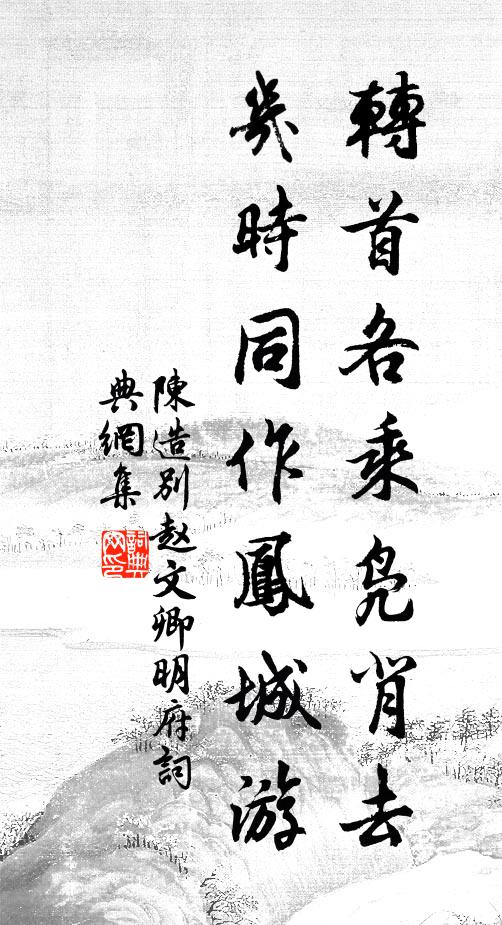 轉首各乘鳧背去
幾時同作鳳城游
陳造別赵文卿明府詞
典網集
詞典
網印